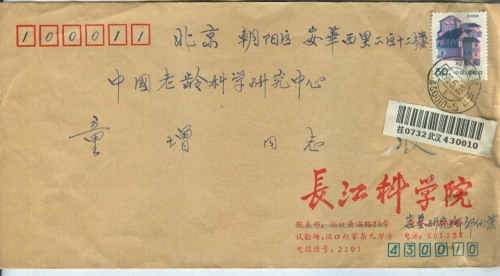 100011 北京 朝阳区 安華西里二区十二楼
中国老龄科学研究中心
童增同志 收
50
中国人民邮政
挂0732 武汉 430010
長江科学院
院本部：汉口黄浦路23号
试验场：汉口赵家条九万方
电话：
电报挂号：2101
430010